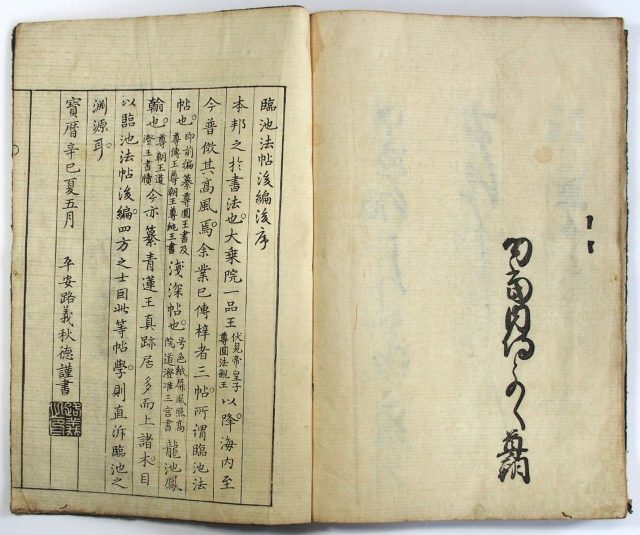 臨池法帖後編後序
本邦之於書法也大乗院一品王伏見帝皇子尊圓法親王以降海内至
今普倣其髙風焉余業已傳梓者三帖所謂臨池法
帖也即前編纂尊圓王書及尊傳王尊朝王尊純王書淺深帖也号色紙屏風臨髙院道澄准三宮書龍池鳳
翰也尊朝王道澄王書牘今亦纂青蓮王真跡居多而上諸木目
以臨池法帖後編四方之士因此等帖學則直泝臨池之
淵源耳
寶暦辛巳夏五月　平安路義秋德謹書